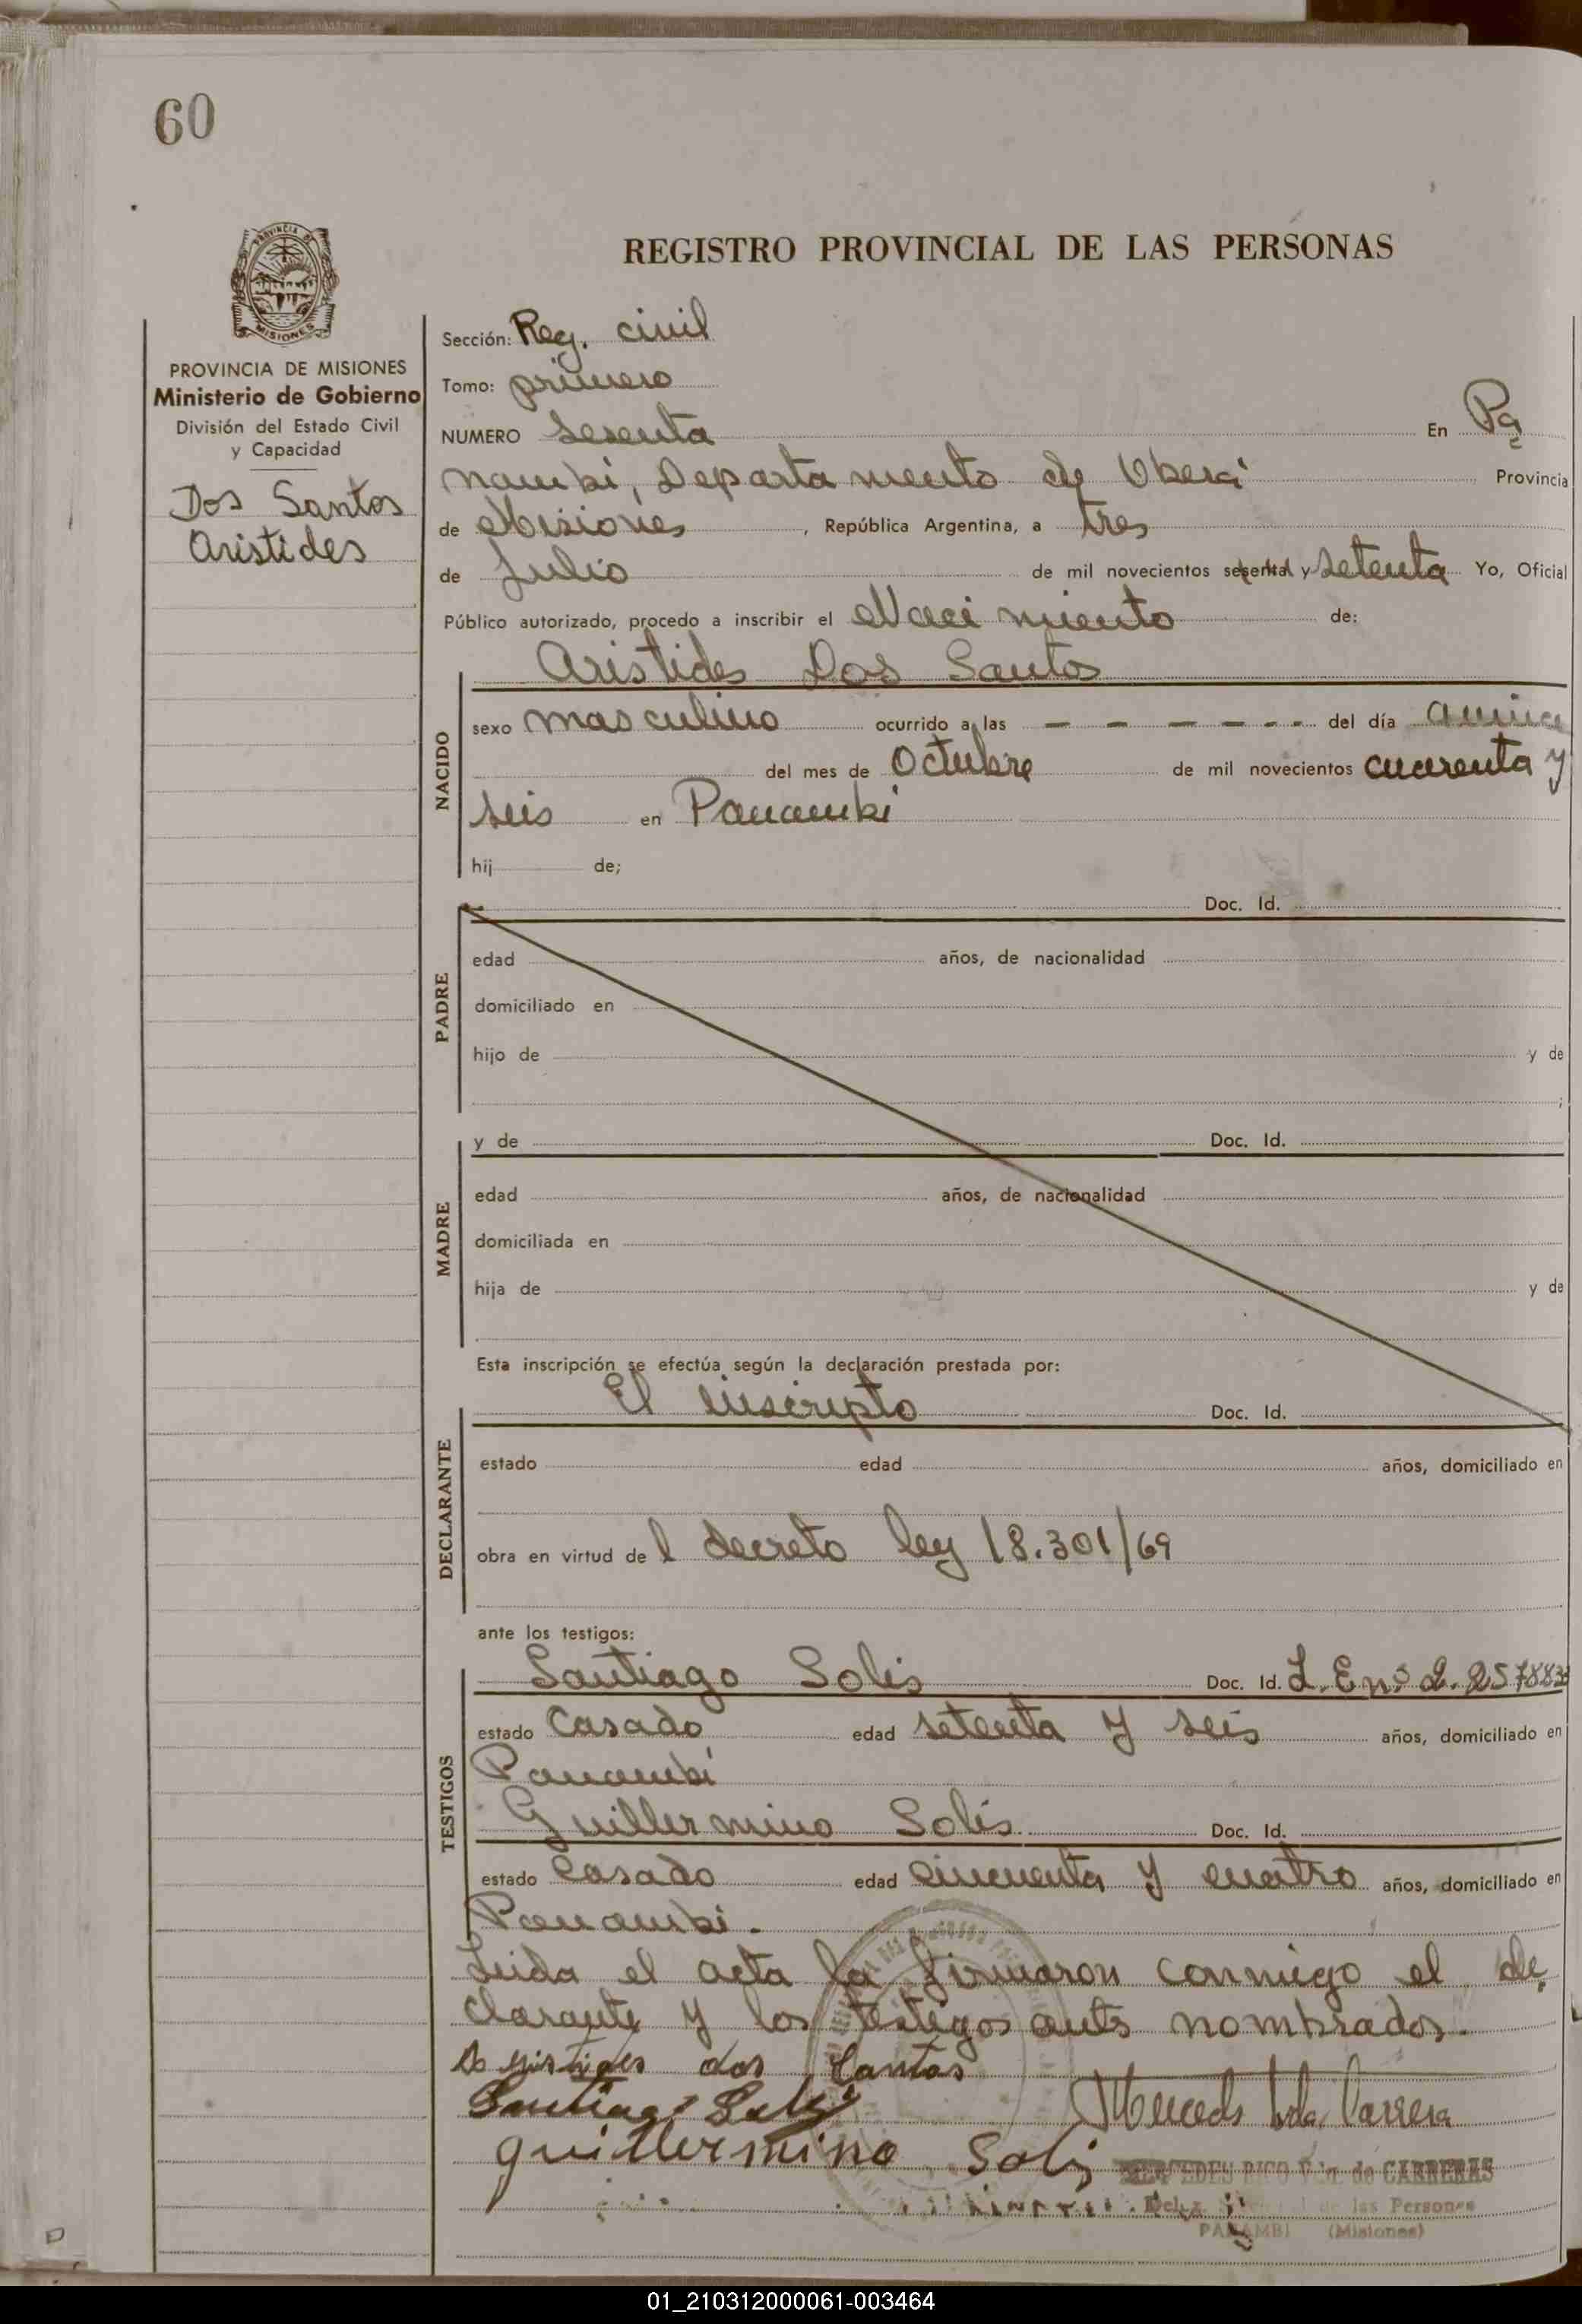 60
PROVINCIA DE
MISIONES
REGISTRO PROVINCIAL DE LAS PERSONAS
PROVINCIA DE MISIONES
Ministerio de Gobierno
División del Estado Civil
y Capacidad
Dos Santos
Aristides
Sección: Reg. civil
Tomo: primero
NUMERO Sesenta En Pa
nambi, Departamento de Oberá Provincia
de Misiones, República Argentina, a tres
de Julio de mil novecientos sesenta y setenta Yo, Oficial
Público autorizado, procedo a inscribir el Nacimiento de:
Aristides Dos Santos
NACIDO
sexo masculino ocurrido a las - - - - - - del día quince
del mes de Octubre de mil novecientos cuarenta y
seis en Panambi
hij de;
PADRE
Doc. Id.
edad años, de nacionalidad
domiciliado en
hijo de y de
;
MADRE
y de Doc. Id.
edad años, de nacionalidad
domiciliada en
hija de y de
Esta inscripción se efectúa según la declaración prestada por:
DECLARANTE
El inscripto Doc. Id.
estado edad años, domiciliado en
obra en virtud de l decreto ley 18.301/69
ante los testigos:
TESTIGOS
Santiago Solis Doc. Id. L. E nº 2.
estado Casado edad setenta y seis años, domiciliado en
Panambi
Guillermino Solis Doc. Id.
estado Casado edad cincuenta y cuatro años, domiciliado en
Panambi.
Leida el acta la firmaron conmigo el de
clarante y los testigos antes nombrados.
dos Santos
Santiago Solis
Mercedes Vda. Carrera
guillermino Solis
MERCEDES RICO Vda. de CARRERAS
de las Personas
PANAMBI (Misiones)
01_210312000061-003464